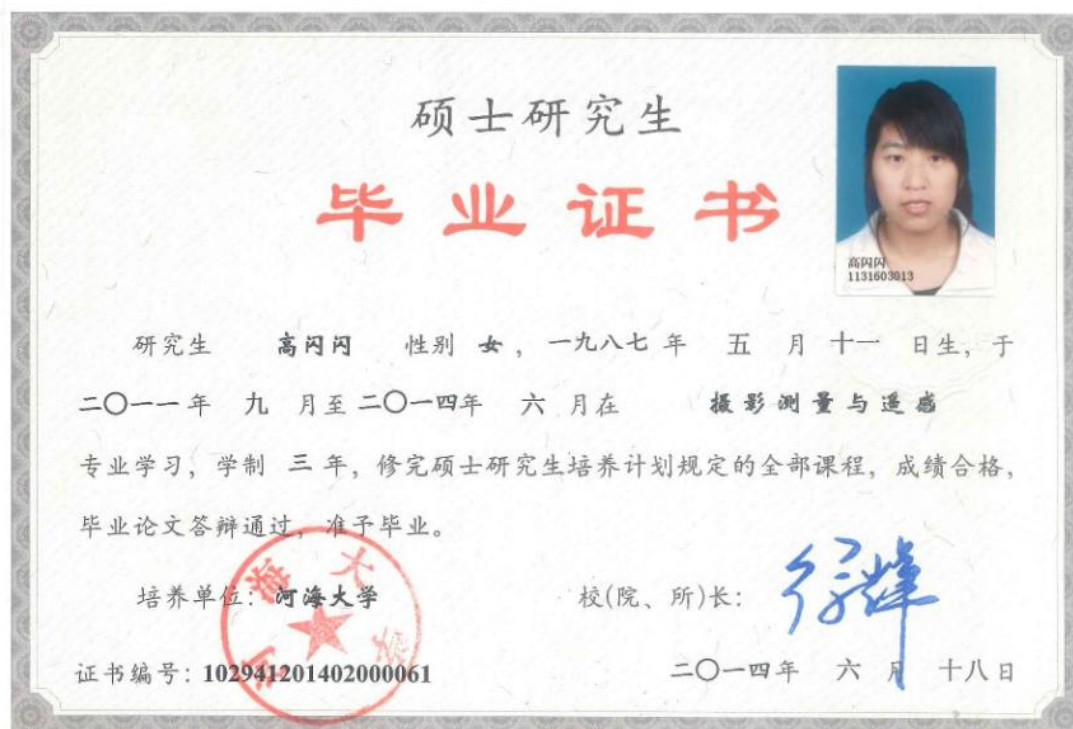 硕士研究生
毕业证书
高闪闪
1131603013
研究生 高闪闪 性别 女，一九八七 年 五 月 十一 日生，于
二〇一一年 九 月至二〇一四年 六 月在 摄影测量与遥感
专业学习，学制 三 年，修完硕士研究生培养计划规定的全部课程，成绩合格，
毕业论文答辩通过，准予毕业。
培养单位：河海大学 校(院、所)长：
河海大学
证书编号：102941201402000061 二〇一四年 六 月 十八日